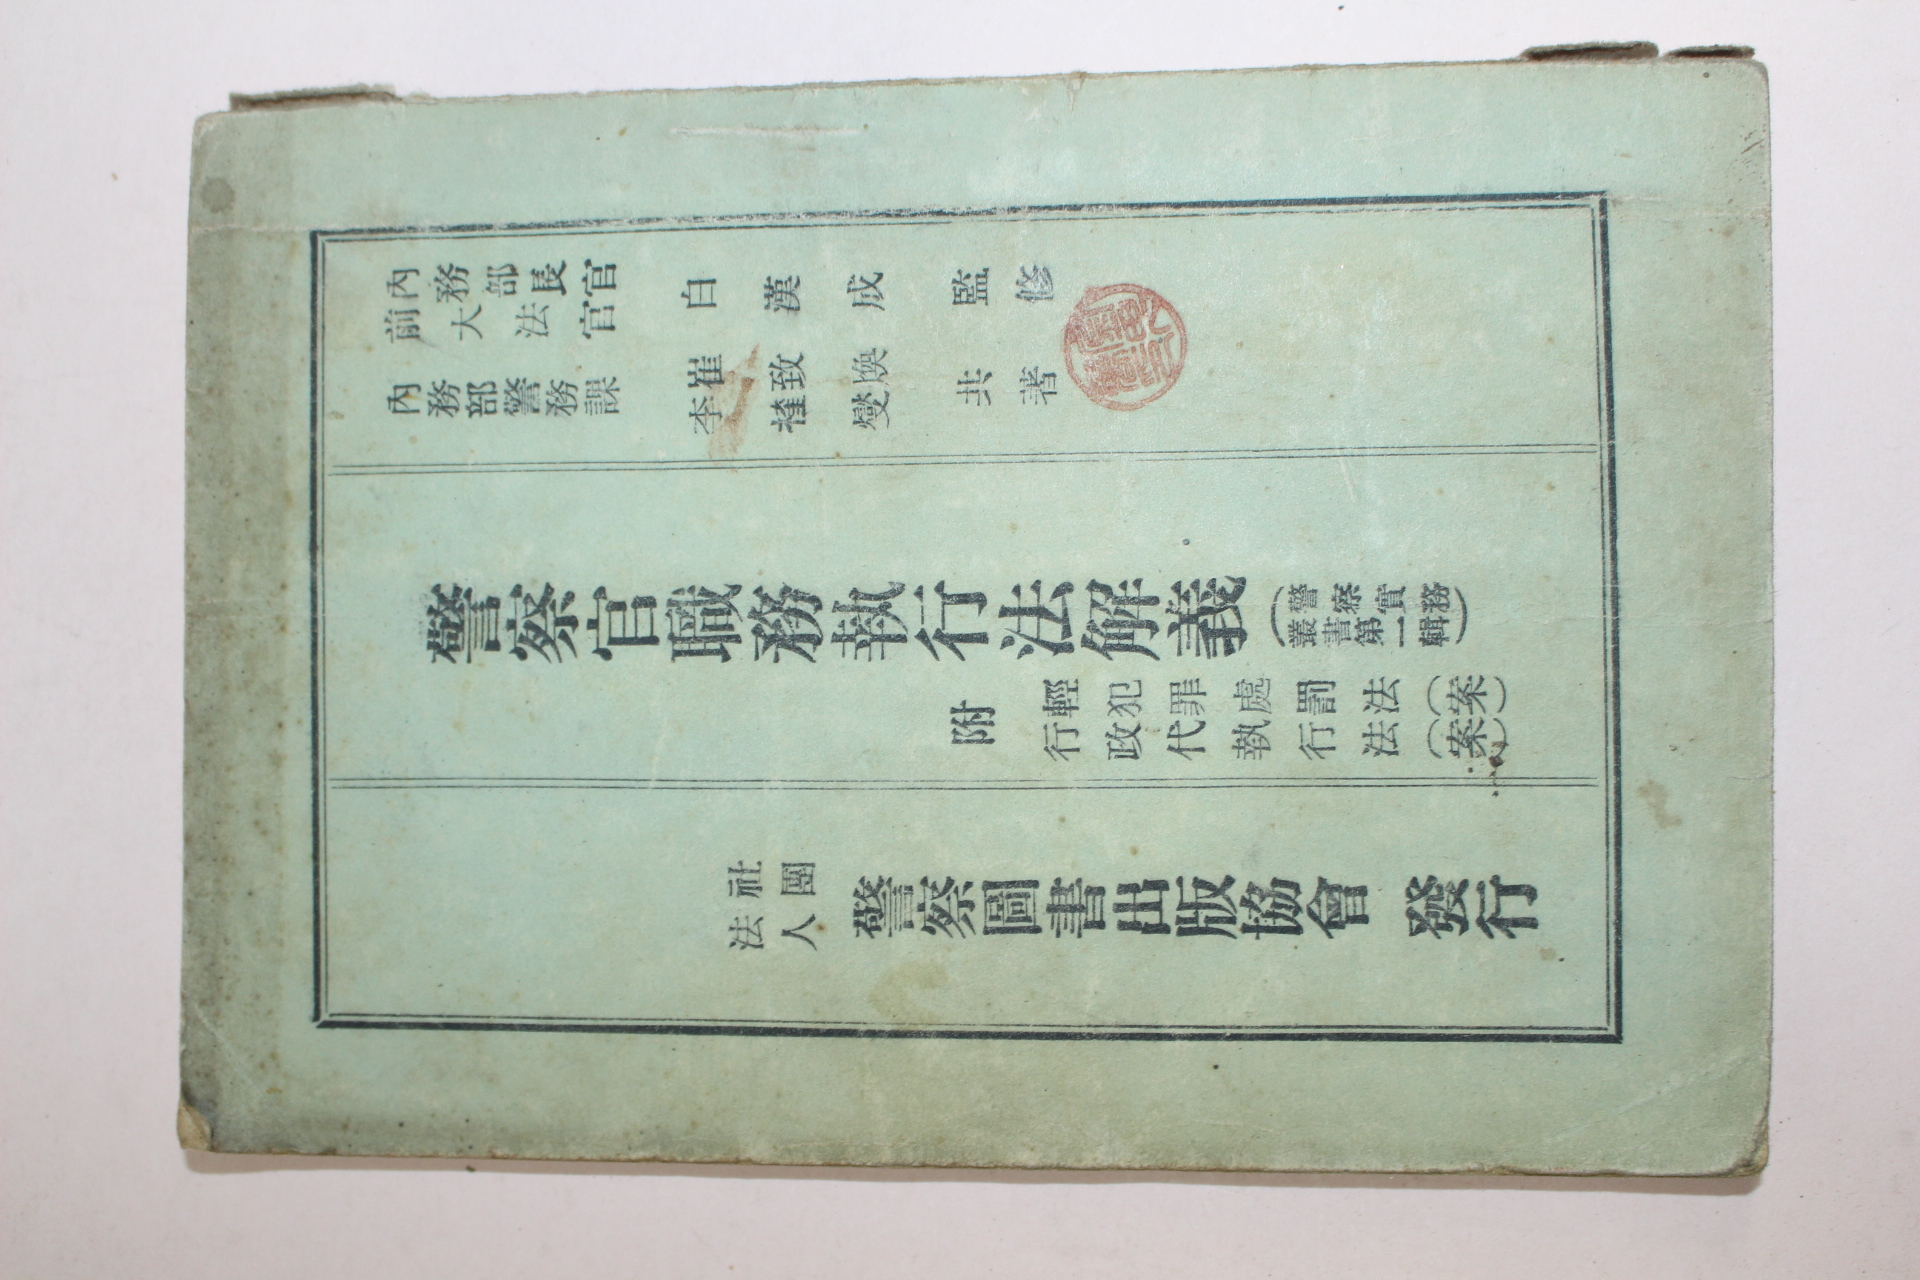 內務部長官
前大法官
白漢成 監修
內務部警務課
崔致煥
李
燮
共著
警察官職務執行法解義
(警察實務
叢書第一輯)
附
輕犯罪處罰法(案)
行政代執行法(案)
社團
法人
警察圖書出版協會 發行